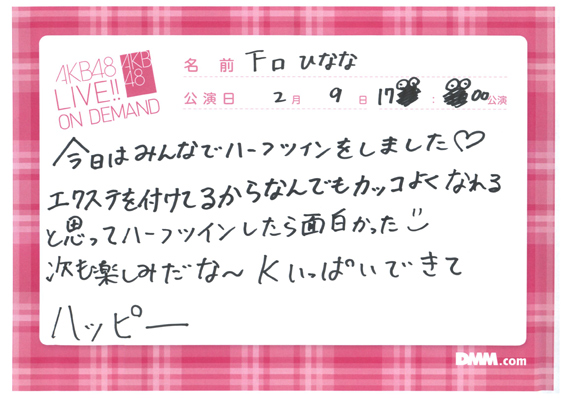 AKB48
LIVE!!
ON DEMAND
AKB
48
名前 下口ひなな
公演日 2月 9日 17:00公演
今日はみんなでハーフツインをしました♡
エクステを付けてるからなんでもカッコよくなれる
と思ってハーフツインしたら面白かった
次も楽しみだな〜 Kいっぱいできて
ハッピー
DMM.com